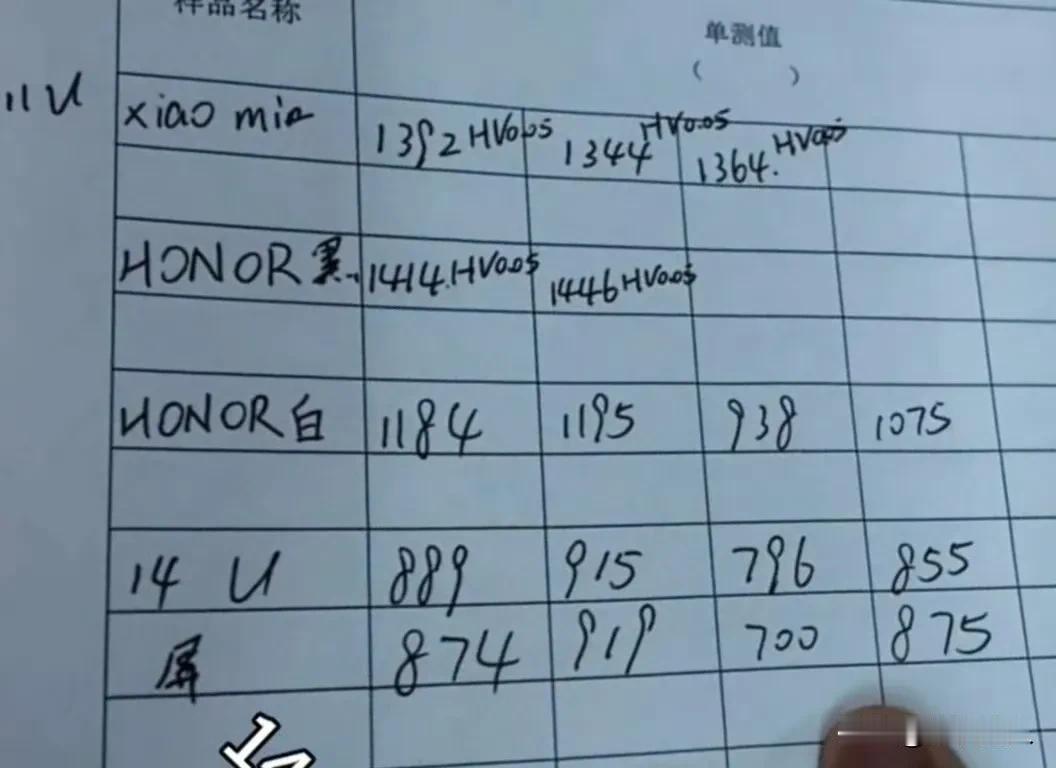 样品名称
单测值
( )
11 U xiao mie 1392 HV0.05 1344 HV0.05 1364. HV0.05
HONOR 黑 1414. HV0.05 1446 HV0.05
HONOR 白 1184 1195 938 1075
14 U 889 915 796 855
屏 874 919 700 875
14